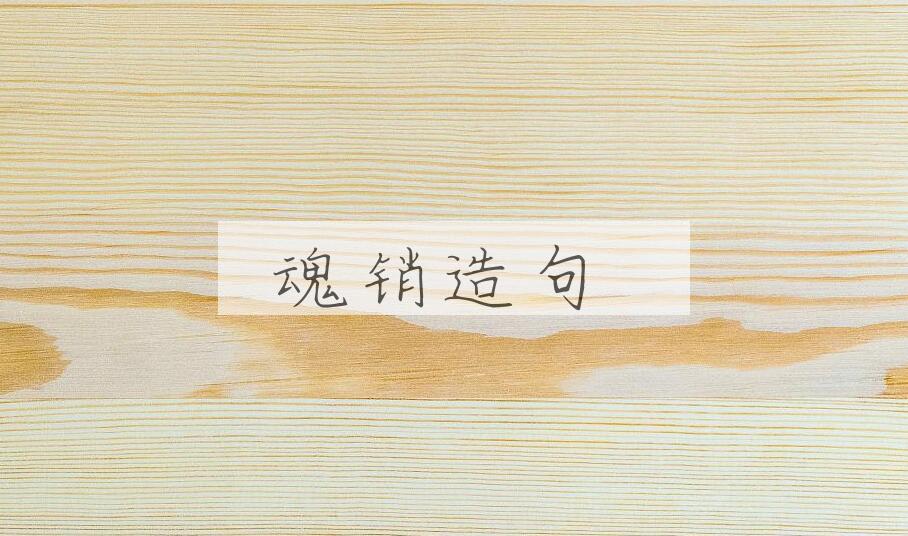 魂销造句